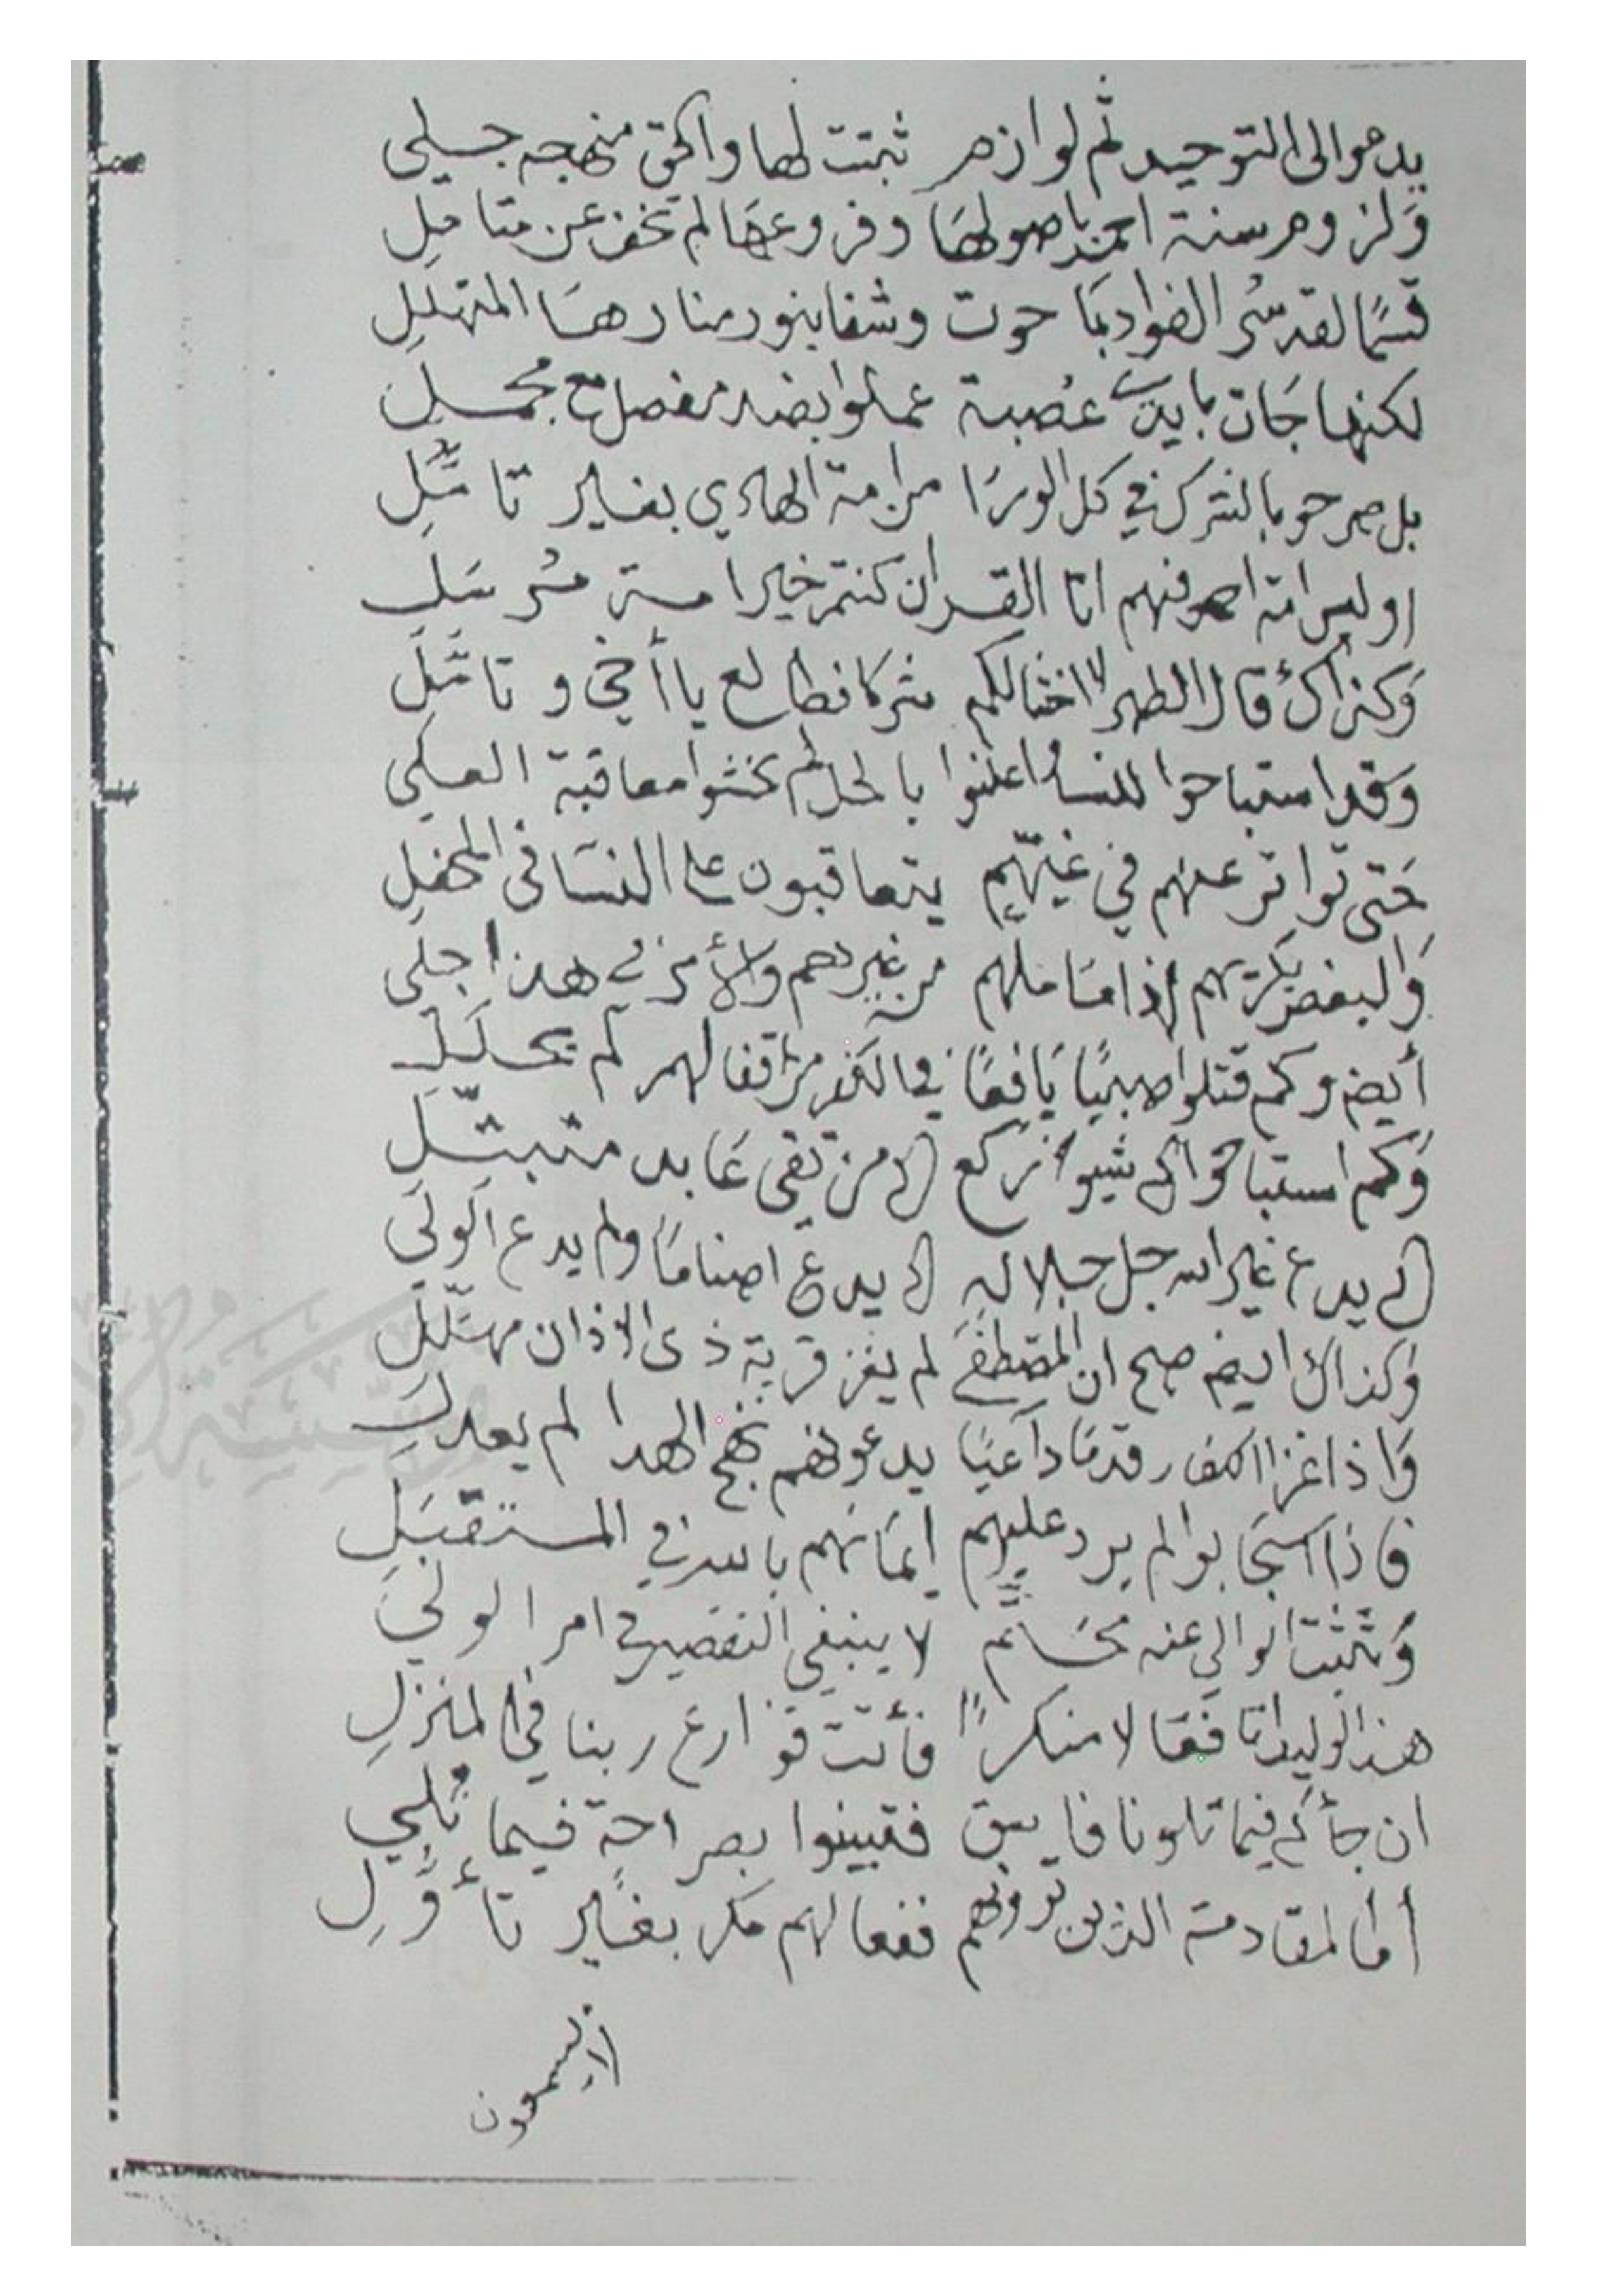 يدعوا الى التوحيد ثم لوازم ثبتت لها والحق منهجه جلي
وَلزوم سنة احمد باصولهَا وفروعهَا لم تخف عن متامِلِ
قسمًا لقد سُر الفواد بمَا حوت وشفا بنور منارهَا المتهللِ
لكنها جَات بايدي عُصبة عملوا بضد مفصل مع مجملِ
بل صرحو بالشرك في كل الورَا من امة الهادي بغير تامّلِ
اوليس امة احمد فيهم اتا القران كنتم خير امة مُرسَلِ
وَكذاكَ قال الطهر لا اخشا لكم شركا فطالع يا أخي وتامّلِ
وَقد استباحوا للنساء واعلنوا بالحل لم يخشوا معاقبة العلي
حَتى تواتر عنهم في غيّهِم يتعاقبون على النسَا في المحفلِ
وَالبغض يكرتهم إذا مَا ملهم من غيرهم والأمر في هذا جلي
أيض وكم قتلوا صبيًا يَافعًا في الكفر مر اقفالهم لم يحلَلِ
وَكم استباحوا لي شيوخ ركع الا من تقى عَابد متبتّلِ
ان يدع غير الله جل جلاله ان يدع اصنامًا ولم يدع الوَلي
وَكذاك ايض صح ان المصطفَى لم يغز قرية ذى الاذان مهلّلِ
وَاذا غزا الكفار قدمَا داعيًا يدعوهم نهج الهدا لم يعدلِ
فاذا استجَابوا لم يرد عليهم إيمَانهم بالله في المستقبَلِ
وَتثبت الوالي عنه محَتم لا ينبغي التقصير في امر الولي
هذا الوليد اتا فقَا لا منكرًا فأتت قوارع ربنا في المنزلِ
ان جأكم فيما تلونا فاسق فتبينوا بصراحةٍ فيما تُلي
أما المقادمة الذين ترونهم ففعالهم مكر بغَير تأوّلِ
لايسمعون